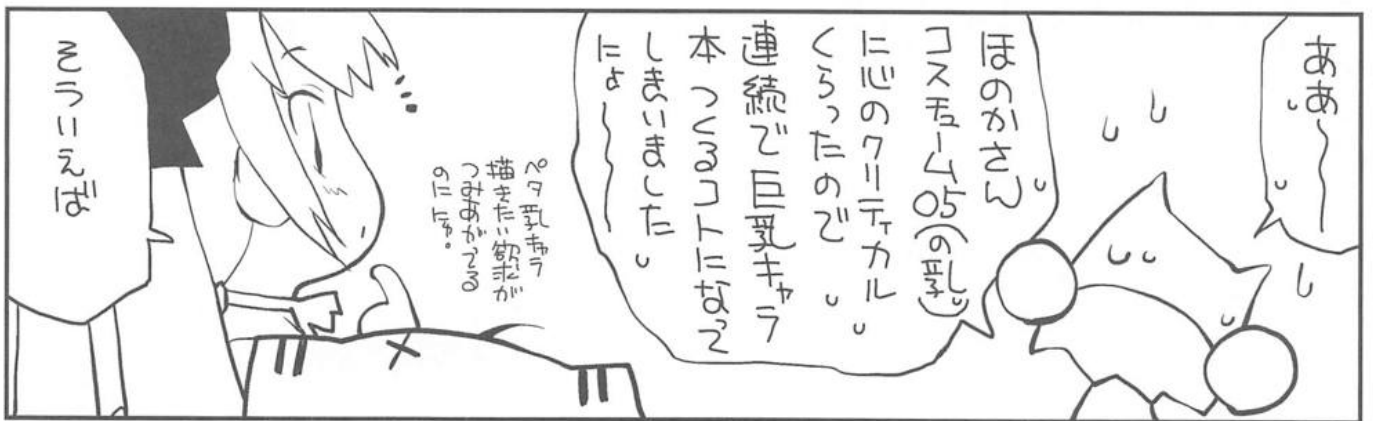 ああ〜〜
ほのかさん
コスチューム05(の乳)
に心のクリティカル
くらったので
連続で巨乳キャラ
本つくるコトになって
しまいました
にょ〜〜
ペタ乳キャラ
描きたい欲求が
つみあがってる
のににょ。
そういえば